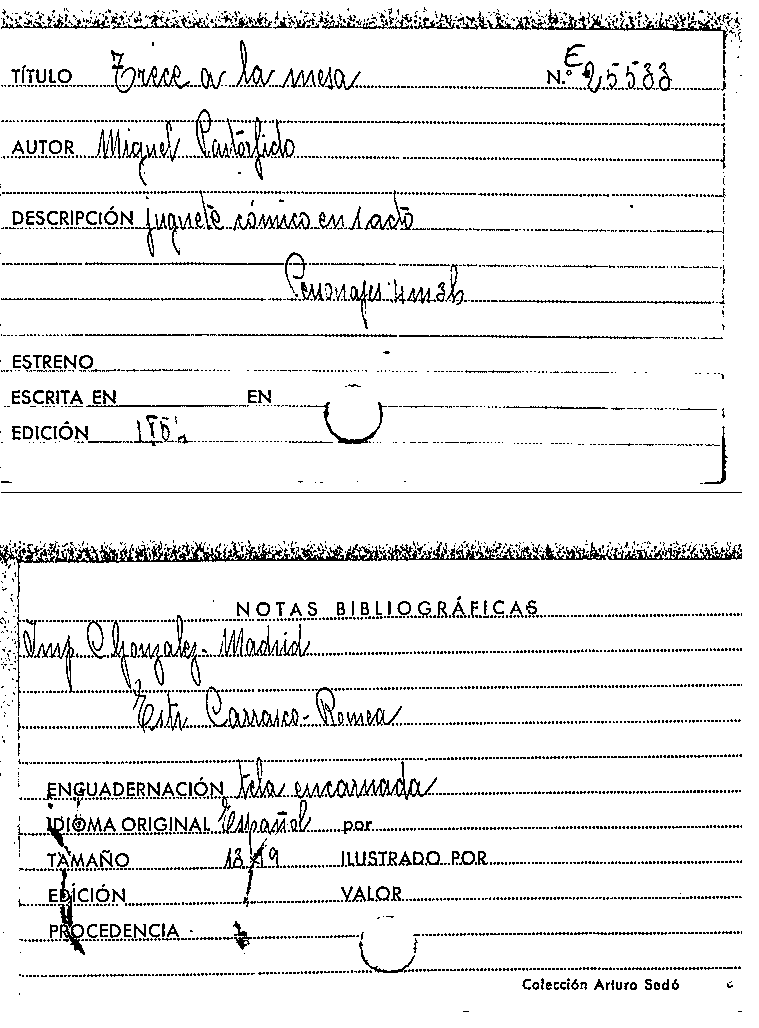 TÍTULO Trece a la mesa N.º E 25533
AUTOR Miguel Pastorfido
DESCRIPCIÓN juguete cómico en 1 acto
Personajes 4m 3h
ESTRENO
ESCRITA EN EN
EDICIÓN
NOTAS BIBLIOGRÁFICAS
Imp C Gonzalez - Madrid
Estr Carrasco - Romea
ENGUADERNACIÓN tela encarnada
IDIOMA ORIGINAL Español por
TAMAÑO 13 19 ILUSTRADO POR
EDICIÓN VALOR
PROCEDENCIA
Colección Arturo Sedó